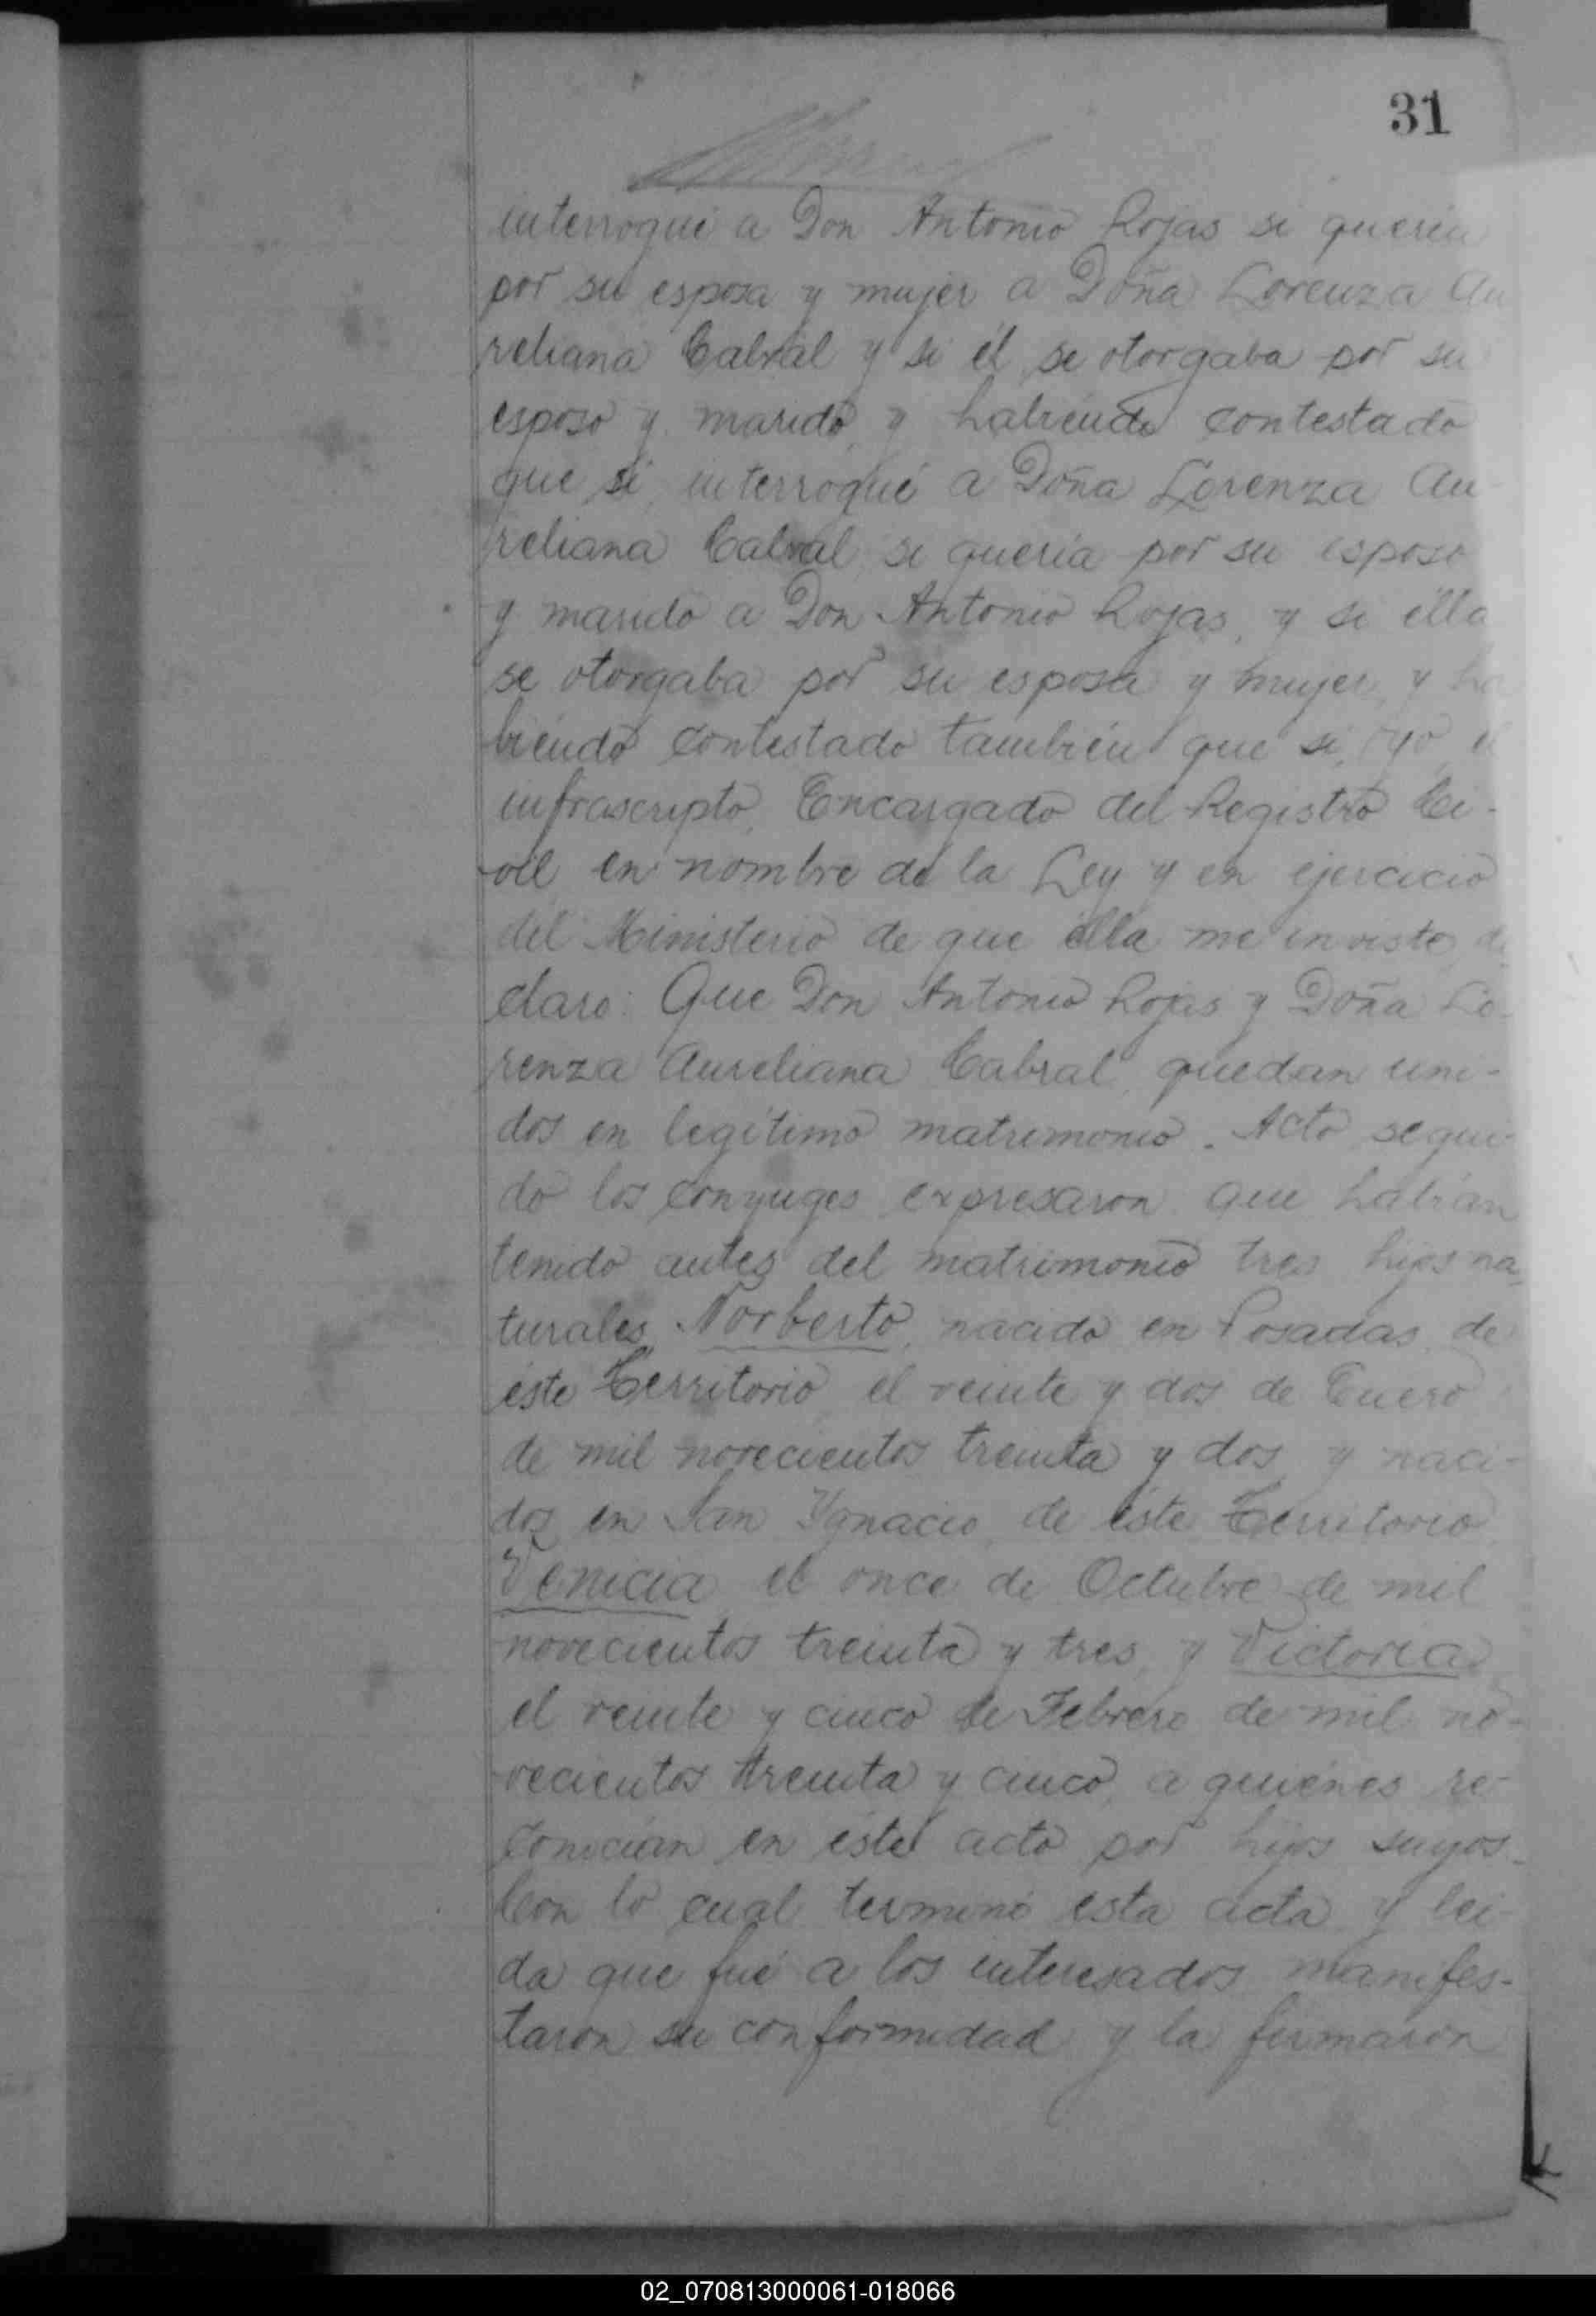 31
interrogué a Don Antonio Rojas si quería
por su esposa y mujer a Doña Lorenza Au
reliana Cabral y si él se otorgaba por su
esposo y marido, y habiendo contestado
que si, interrogué a Doña Lorenza Au-
reliana Cabral, si quería por su esposo
y marido a Don Antonio Rojas, y si élla
se otorgaba por su esposa y mujer, y ha
biendo contestado también que si, yo, el
infrascripto, Encargado del Registro Ci-
vil en nombre de la Ley y en ejercicio
del Ministerio de que élla me inviste, de
claro: Que Don Antonio Rojas y Doña Lo-
renza Aureliana Cabral, quedan uni-
dos en legítimo matrimonio. Acto segui-
do los conyuges expresaron que habían
tenido antes del matrimonio tres hijos na-
turales, Norberto, nacido en Posadas, de
éste Territorio, el veinte y dos de Enero
de mil novecientos treinta y dos, y naci-
dos en San Ignacio, de éste Territorio
Venicia el once de Octubre de mil
novecientos treinta y tres, y Victoria
el veinte y cinco de Febrero de mil no-
vecientos treinta y cinco, a quiénes re-
conocían en éste acto por hijos suyos.
Con lo cual terminó esta acta y lei-
da que fué a los interesados manifes-
taron su conformidad y la firmaron
02_070813000061-018066